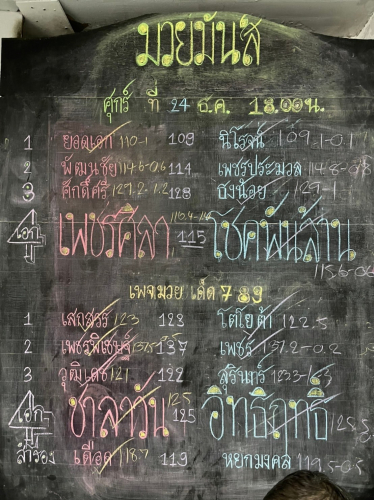 มวยมันส์
ศุกร์ ที่ 24 ธ.ค. 18.00น.
1 ยอดเอก 110-1 109 นิโรจน์ 109.1-0.1
2 พัฒนชัย 114.6-0.6 114 เพชรประมวล 114.8-0.8
3 ศักดิ์ศรี 129.2-1.2 128 ธงน้อย 129-1
เอก เพชรศิลา 115 โชคพันล้าน 115.6-0.6
เพจมวยเด็ด789
1 เสกสรร 123 123 โตโยต้า 122.5
2 เพชรพิเชษฐ์ 137 เพชร 137.2-0.2
3 วุฒิเดช 121 122 สุรินทร์
เอก ชาลาวัน 125 125 อิทธิฤทธิ์
สำรอง เดือด 118.7 119 หยกมงคล 119.5-0.5